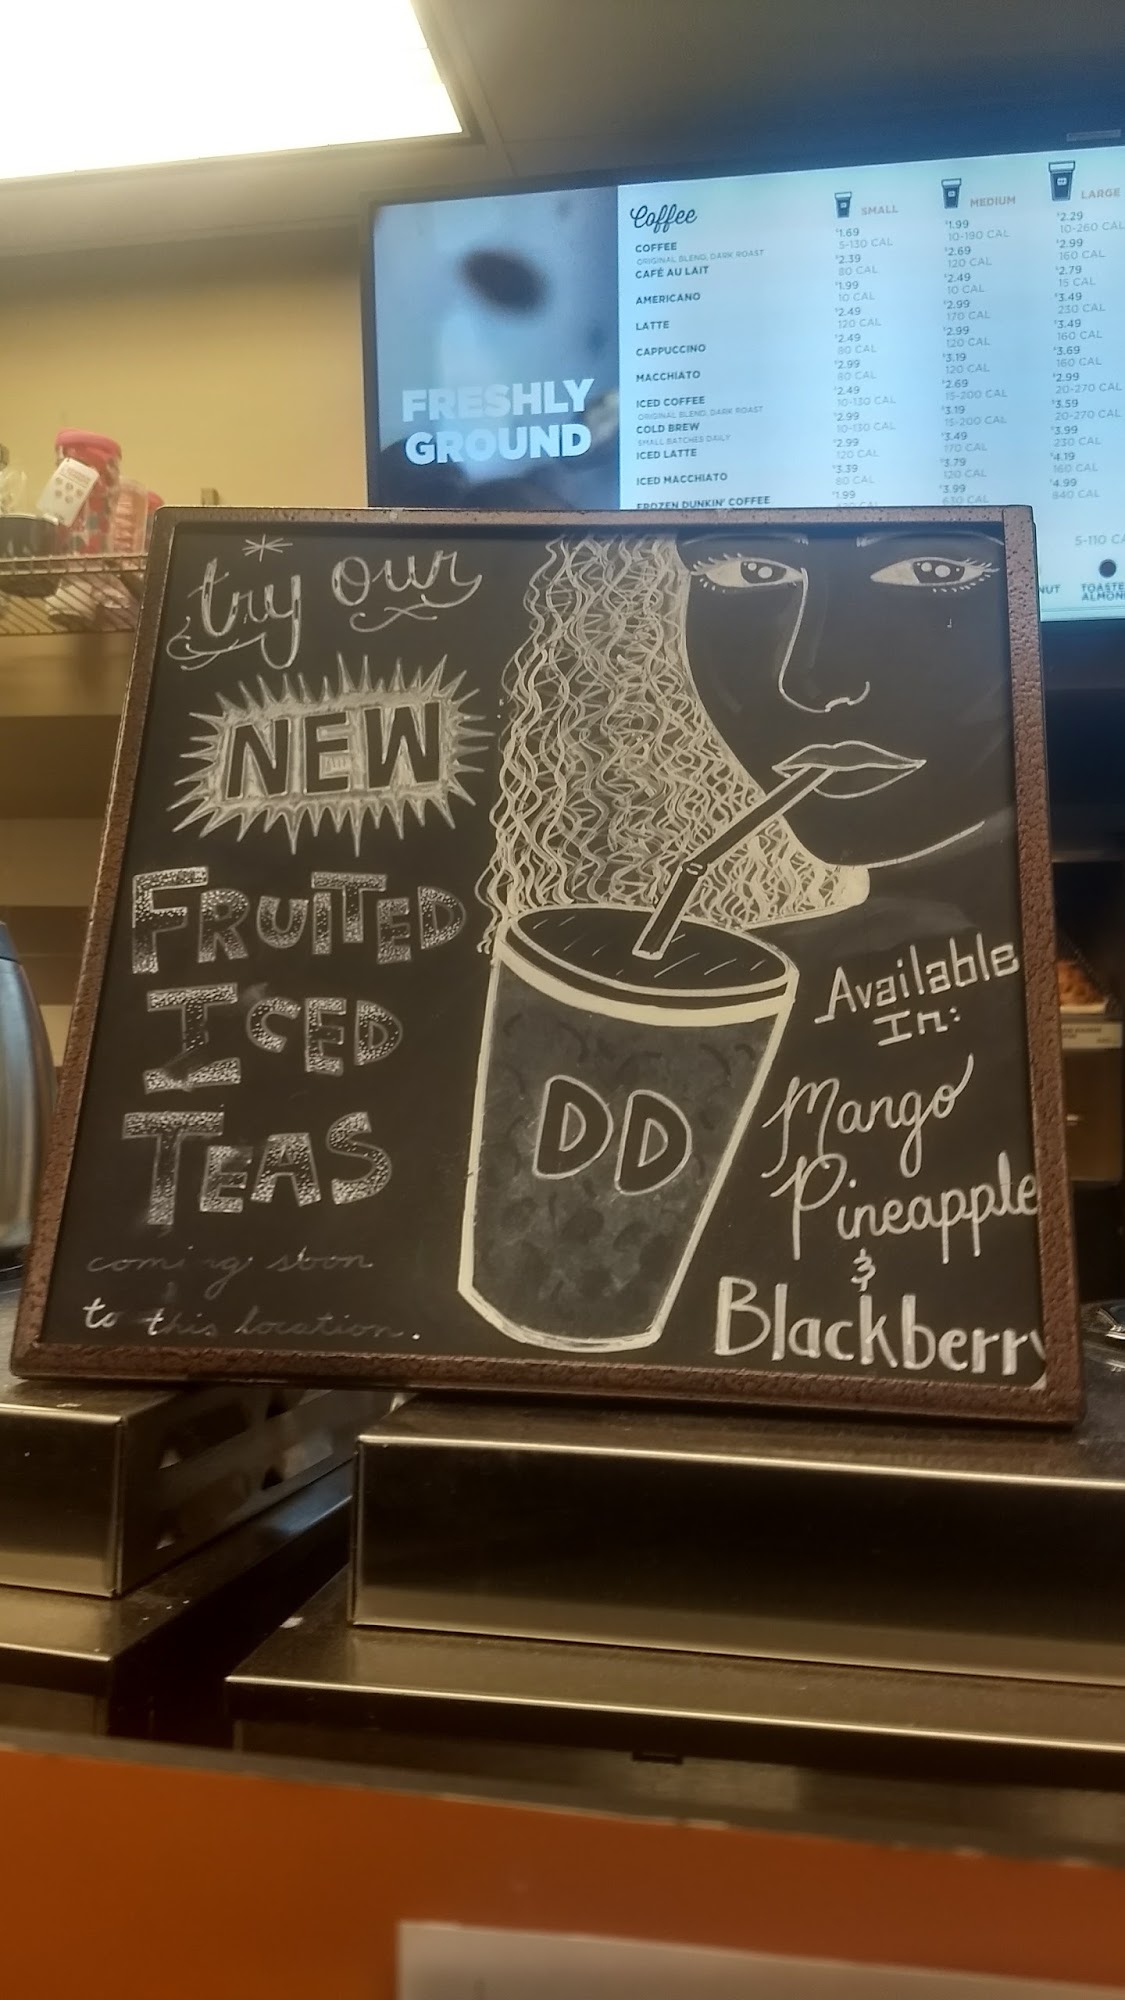 Coffee
SMALL MEDIUM LARGE
COFFEE
ORIGINAL BLEND, DARK ROAST
$1.69 $1.99 $2.29
5-130 CAL 10-190 CAL 10-260 CAL
CAFÉ AU LAIT
$2.39 $2.69 $2.99
80 CAL 120 CAL 160 CAL
AMERICANO
$1.99 $2.49 $2.79
10 CAL 10 CAL 15 CAL
LATTE
$2.49 $2.99 $3.49
120 CAL 170 CAL 230 CAL
CAPPUCCINO
$2.49 $2.99 $3.49
80 CAL 120 CAL 160 CAL
MACCHIATO
$2.99 $3.19 $3.69
80 CAL 120 CAL 160 CAL
ICED COFFEE
ORIGINAL BLEND, DARK ROAST
$2.49 $2.69 $2.99
10-130 CAL 15-200 CAL 20-270 CAL
COLD BREW
SMALL BATCHES DAILY
$2.99 $3.19 $3.59
10-130 CAL 15-200 CAL 20-270 CAL
ICED LATTE
$2.99 $3.49 $3.99
120 CAL 170 CAL 230 CAL
ICED MACCHIATO
$3.39 $3.79 $4.19
80 CAL 120 CAL 160 CAL
FROZEN DUNKIN' COFFEE
$1.99 $3.99 $4.99
630 CAL 840 CAL
5-110 CA
NUT TOASTE
ALMON
FRESHLY
GROUND
try our
NEW
FRUITED
ICED
TEAS
coming soon
to this location.
DD
Available
In:
Mango
Pineapple
&
Blackberry